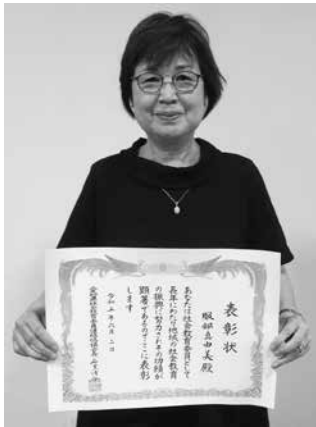 表彰状
服部真由美殿
あなたは社会教育委員として
長年にわたり地域の社会教育
の振興に努力されその功績が
顕著であるのでここに表彰
します
令和五年六月二日